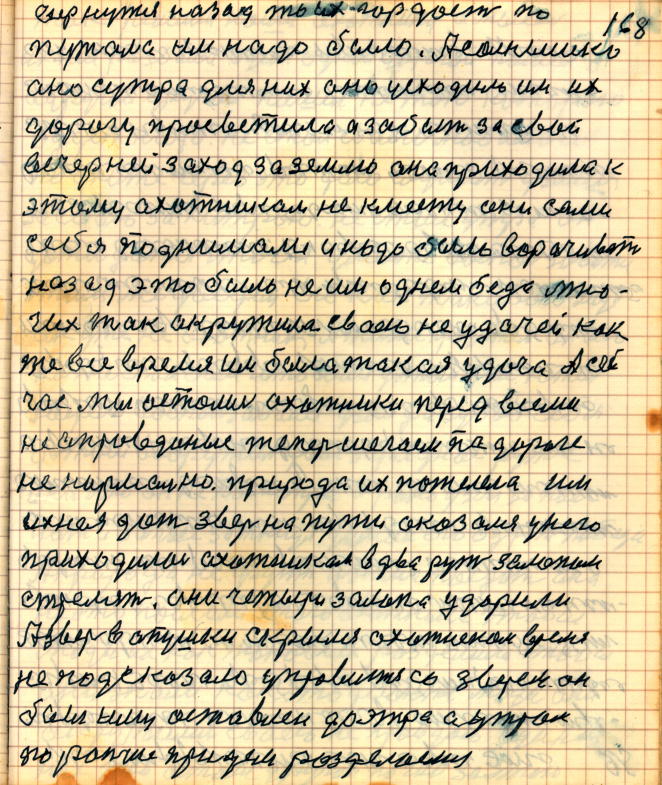 168
вернутя назад то их гордост по
путала им надо было. А солнышко
ано сутра для них оно усходиль им их
дорогу просветила а забыт за свой
вечерней заход за землю она приходила к
этому охотникам не кместу они сами
себя поднимали и надо быль ворачиват
назад это быль не им однем беда мно-
гих так окружила своею не удачей как
же все время им была такая удоча А сей
час мы остолис охотники перед всеми
не оправданые тепер шегаем па дороге
не нармально. природа их пожелела им
ихная дот звер на пути оказоля у него
приходилос охотникам в два руж залпом
стрелят. они четыри залпа ударили
А звер в опушки скрылся охотником время
не подсказало управитсь с зверем. он
был ими оставлен доэтра а утром
по раньше придем разделаемся